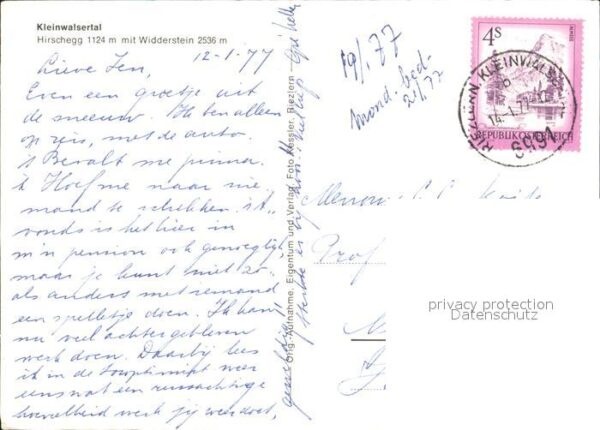 Kleinwalsertal
Hirschegg 1124 m mit Widderstein 2536 m
12-1-'77
Lieve Jen,
Even een groetje uit
de sneeuw. Ik ben alleen
op reis, met de auto.
't Bevalt me prima.
'k Hoef me naar nie-
mand te schikken. 's A-
vonds is het hier in
m'n pension ook genoeglijk
maar je kunt niet zo-
als anders met iemand
een spelletje doen. Ik kan
nu veel achtergebleven
werk doen. Daarbij lees
ik in de
eens wat een reusachtige
hoeveelheid werk jij weer doet,
Orig.-Aufnahme, Eigentum und Verlag: Foto Kessler, Riezlern
19/1 77
Mond. bed-
21/1 77
4 S
REPUBLIK ÖSTERREICH
RIEZLERN, KLEINWALSERTAL
14.-1.77-12
6991
Mevrouw
Prof
privacy protection
Datenschutz